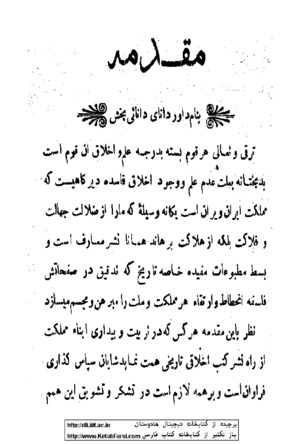 مقدمه
بنام داور دانای دانائی بخش
ترقی و تعالی هر قوم بسته بدرجه علم و اخلاق آن قوم است
بدبختانه بعلت عدم علم و وجود اخلاق فاسده دیرگاهیست که
مملکت ایران ویران است یگانه وسیلهٔ که مارا از ضلالت جهالت
و فلاکت بلکه از هلاکت برهاند همانا نشر معارف است و
بسط مطبوعات مفیده خاصه تاریخ که تدقیق در صفحاتش
فلسفه انحطاط و ارتقاء هر مملکت و ملت را مبرهن و مجسم میسازد
نظر باین مقدمه هر کس که در تربیت و بیداری ابناء مملکت
از راه نشر کتب اخلاقی تاریخی همت نماید شایان سپاس گذاری
فراوان است و برهمه لازم است در تشکر و تشویق این همم
http://dli.iiit.ac.in برچیده از کتابخانه دیجیتال هندوستان
http://www.KetabFarsi.com باز تکثیر از کتابخانه کتاب فارسی